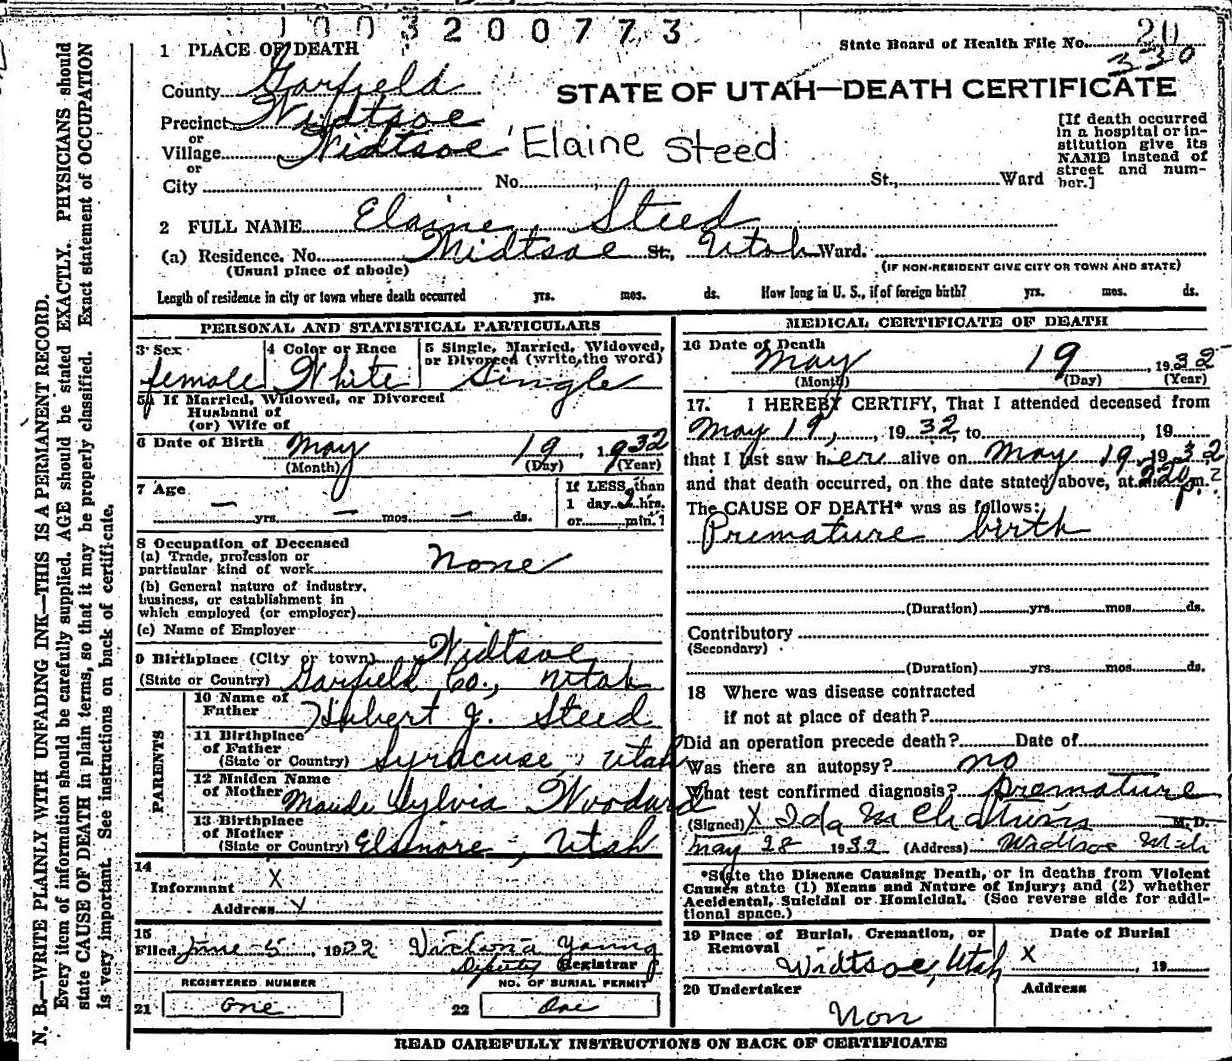 1003200773
State Board of Health File No. 20
330
1 PLACE OF DEATH
County Garfield
STATE OF UTAH—DEATH CERTIFICATE
Precinct Widtsoe
or
Village Widtsoe Elaine Steed
or
City No. St., Ward
[If death occurred
in a hospital or in-
stitution give its
NAME instead of
street and num-
ber.]
2 FULL NAME Elaine Steed
(a) Residence. No. Widtsoe St., Utah Ward.
(Usual place of abode) (IF NON-RESIDENT GIVE CITY OR TOWN AND STATE)
Length of residence in city or town where death occurred yrs. mos. ds. How long in U. S., if of foreign birth? yrs. mos. ds.
PERSONAL AND STATISTICAL PARTICULARS
3 Sex
female
4 Color or Race
White
5 Single, Married, Widowed,
or Divorced (write the word)
Single
If Married, Widowed, or Divorced
Husband of
(or) Wife of
6 Date of Birth May 19, 1932
(Month) (Day) (Year)
7 Age
— yrs. — mos. — ds.
If LESS than
1 day 2 hrs.
or min.?
8 Occupation of Deceased
(a) Trade, profession or
particular kind of work None
(b) General nature of industry,
business, or establishment in
which employed (or employer)
(c) Name of Employer
9 Birthplace (City or town) Widtsoe
(State or Country) Garfield Co., Utah
PARENTS
10 Name of
Father Hubert J. Steed
11 Birthplace
of Father
(State or Country) Syracuse, Utah
12 Maiden Name
of Mother Maude Sylvia Woodard
13 Birthplace
of Mother
(State or Country) Elsinore, Utah
14
Informant X
Address
15
Filed June 5, 1932 Victoria Young
Deputy Registrar
REGISTERED NUMBER NO. OF BURIAL PERMIT
21 One 22 One
MEDICAL CERTIFICATE OF DEATH
16 Date of Death
May 19, 1932
(Month) (Day) (Year)
17. I HEREBY CERTIFY, That I attended deceased from
May 19, 1932, to , 19
that I last saw her alive on May 19, 1932
and that death occurred, on the date stated above, at p m.
The CAUSE OF DEATH* was as follows:
Premature birth
(Duration) yrs. mos. ds.
Contributory
(Secondary)
(Duration) yrs. mos. ds.
18 Where was disease contracted
if not at place of death?
Did an operation precede death? Date of
Was there an autopsy? no
What test confirmed diagnosis? Premature
(Signed) X Ida M. M.D.
May 28 1932 (Address) Widtsoe Utah
*State the Disease Causing Death, or in deaths from Violent
Causes state (1) Means and Nature of Injury; and (2) whether
Accidental, Suicidal or Homicidal. (See reverse side for addi-
tional space.)
19 Place of Burial, Cremation, or
Removal
Widtsoe, Utah
Date of Burial
X , 19
20 Undertaker Address
Non
READ CAREFULLY INSTRUCTIONS ON BACK OF CERTIFICATE
N. B.—WRITE PLAINLY WITH UNFADING INK—THIS IS A PERMANENT RECORD.
Every item of information should be carefully supplied. AGE should be stated EXACTLY. PHYSICIANS should
state CAUSE OF DEATH in plain terms, so that it may be properly classified. Exact statement of OCCUPATION
is very important. See instructions on back of certificate.